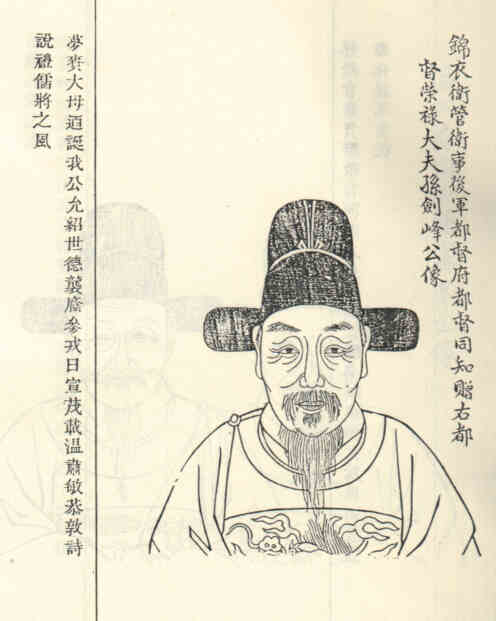 錦衣衛管衛事後軍都督府都督同知贈右都
督榮祿大夫孫劍峰公像
夢大母迺誕我公允紹世德襲廕參戎日宣茂載温肅敏恭敦詩
說禮儒將之風